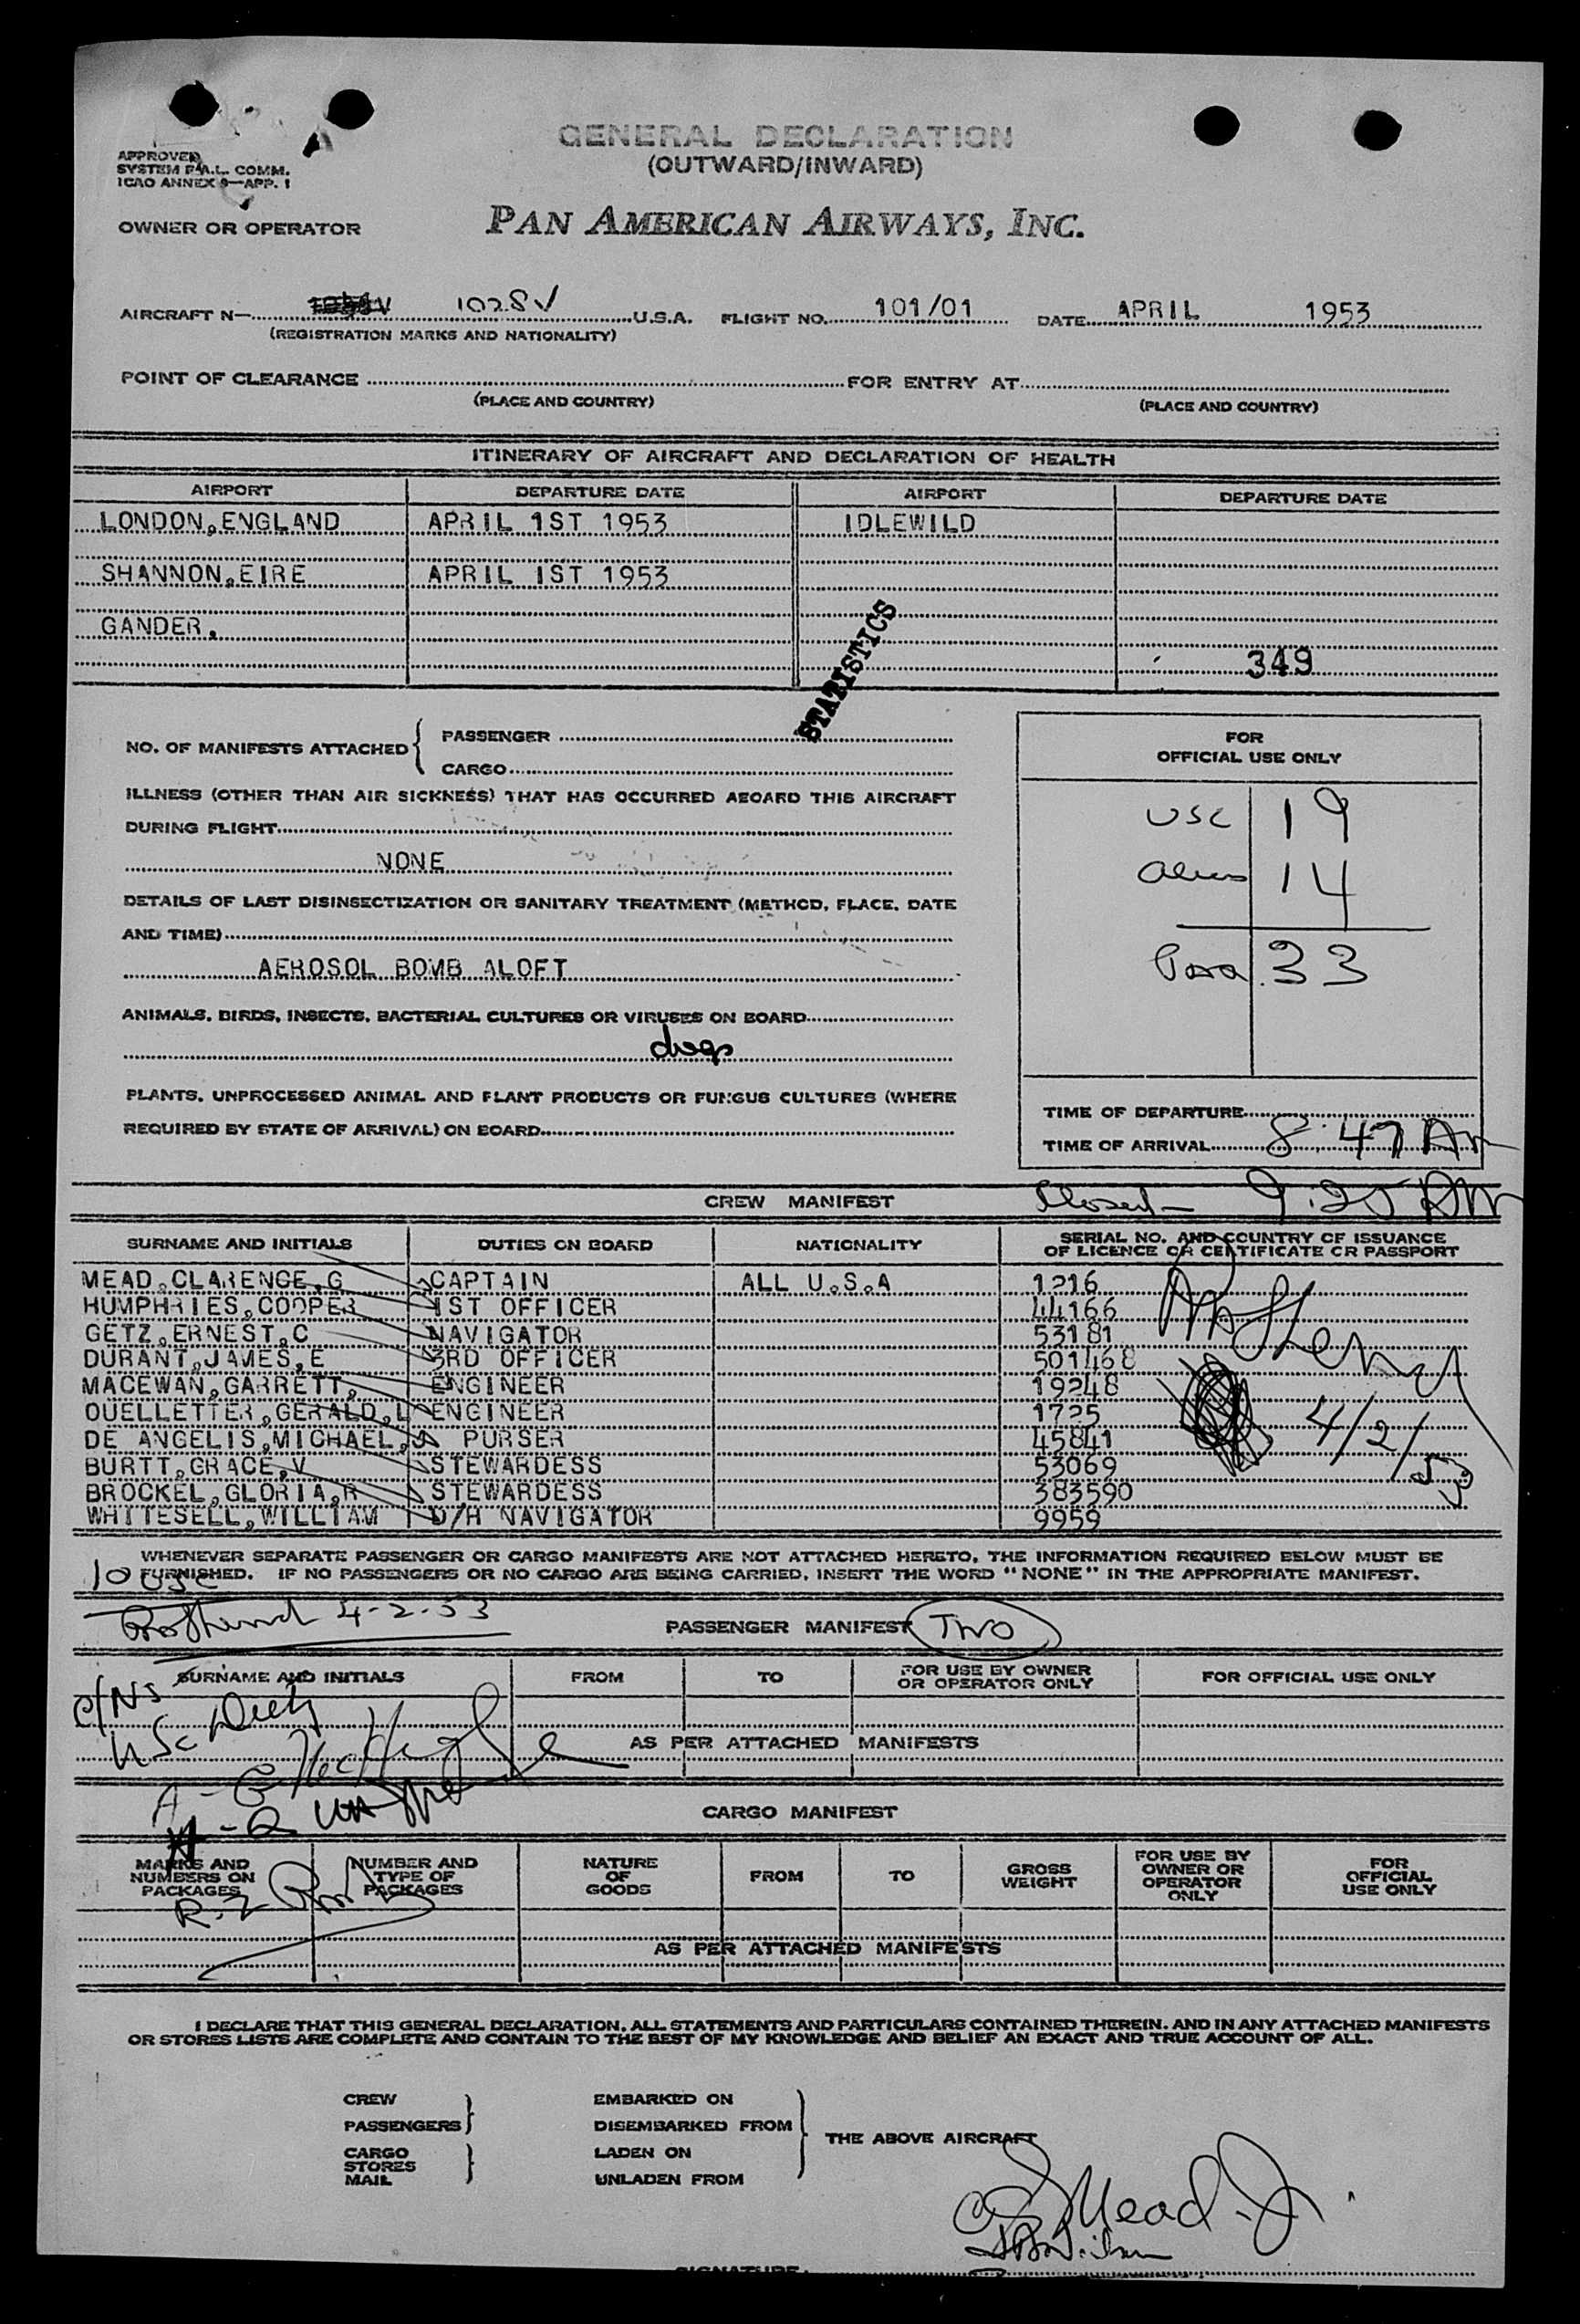 GENERAL DECLARATION
(OUTWARD/INWARD)
APPROVED
SYSTEM F.A.L. COMM.
ICAO ANNEX 9—APP. 1
OWNER OR OPERATOR
PAN AMERICAN AIRWAYS, INC.
AIRCRAFT N— 1028V U.S.A. FLIGHT NO. 101/01 DATE APRIL 1953
(REGISTRATION MARKS AND NATIONALITY)
POINT OF CLEARANCE FOR ENTRY AT
(PLACE AND COUNTRY) (PLACE AND COUNTRY)
ITINERARY OF AIRCRAFT AND DECLARATION OF HEALTH
AIRPORT DEPARTURE DATE AIRPORT DEPARTURE DATE
LONDON,ENGLAND APRIL 1ST 1953 IDLEWILD
SHANNON,EIRE APRIL 1ST 1953
GANDER.
STATISTICS
349
NO. OF MANIFESTS ATTACHED { PASSENGER
CARGO
ILLNESS (OTHER THAN AIR SICKNESS) THAT HAS OCCURRED ABOARD THIS AIRCRAFT
DURING FLIGHT
NONE
DETAILS OF LAST DISINSECTIZATION OR SANITARY TREATMENT (METHOD, PLACE, DATE
AND TIME)
AEROSOL BOMB ALOFT
ANIMALS, BIRDS, INSECTS, BACTERIAL CULTURES OR VIRUSES ON BOARD
dogs
PLANTS, UNPROCESSED ANIMAL AND PLANT PRODUCTS OR FUNGUS CULTURES (WHERE
REQUIRED BY STATE OF ARRIVAL) ON BOARD
FOR
OFFICIAL USE ONLY
USC 19
Aliens 14
33
TIME OF DEPARTURE
TIME OF ARRIVAL 8:47 AM
Closed - 9:20 AM
CREW MANIFEST
SURNAME AND INITIALS DUTIES ON BOARD NATIONALITY SERIAL NO. AND COUNTRY OF ISSUANCE
OF LICENCE OR CERTIFICATE OR PASSPORT
MEAD,CLARENCE,G CAPTAIN ALL U.S.A 1216
HUMPHRIES,COOPER 1ST OFFICER 44166
GETZ,ERNEST,C NAVIGATOR 53181
DURANT,JAMES,E 3RD OFFICER 501468
MACEWAN,GARRETT, ENGINEER 19248
OUELLETTER,GERALD,L ENGINEER 1725
DE ANGELIS,MICHAEL,J PURSER 45841
BURTT,GRACE,V STEWARDESS 53069
BROCKEL,GLORIA,R STEWARDESS 383590
WHITESELL,WILLIAM D/H NAVIGATOR 9959
4/2/53
WHENEVER SEPARATE PASSENGER OR CARGO MANIFESTS ARE NOT ATTACHED HERETO, THE INFORMATION REQUIRED BELOW MUST BE
FURNISHED. IF NO PASSENGERS OR NO CARGO ARE BEING CARRIED, INSERT THE WORD "NONE" IN THE APPROPRIATE MANIFEST.
10 USC
4-2-53
PASSENGER MANIFEST TWO
SURNAME AND INITIALS FROM TO FOR USE BY OWNER
OR OPERATOR ONLY FOR OFFICIAL USE ONLY
USC
AS PER ATTACHED MANIFESTS
CARGO MANIFEST
MARKS AND
NUMBERS ON
PACKAGES NUMBER AND
TYPE OF
PACKAGES NATURE
OF
GOODS FROM TO GROSS
WEIGHT FOR USE BY
OWNER OR
OPERATOR
ONLY FOR
OFFICIAL
USE ONLY
AS PER ATTACHED MANIFESTS
I DECLARE THAT THIS GENERAL DECLARATION, ALL STATEMENTS AND PARTICULARS CONTAINED THEREIN, AND IN ANY ATTACHED MANIFESTS
OR STORES LISTS ARE COMPLETE AND CONTAIN TO THE BEST OF MY KNOWLEDGE AND BELIEF AN EXACT AND TRUE ACCOUNT OF ALL.
CREW EMBARKED ON
PASSENGERS DISEMBARKED FROM
THE ABOVE AIRCRAFT
CARGO LADEN ON
STORES
MAIL UNLADEN FROM
CG Mead Jr.
SIGNATURE